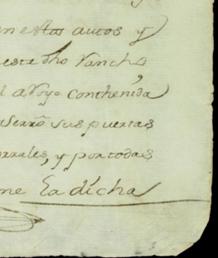 en estos autos y
este dho Rancho,
el aRoyo Conthenida
serró sus puertas
corrales, y por todas
ne La dicha